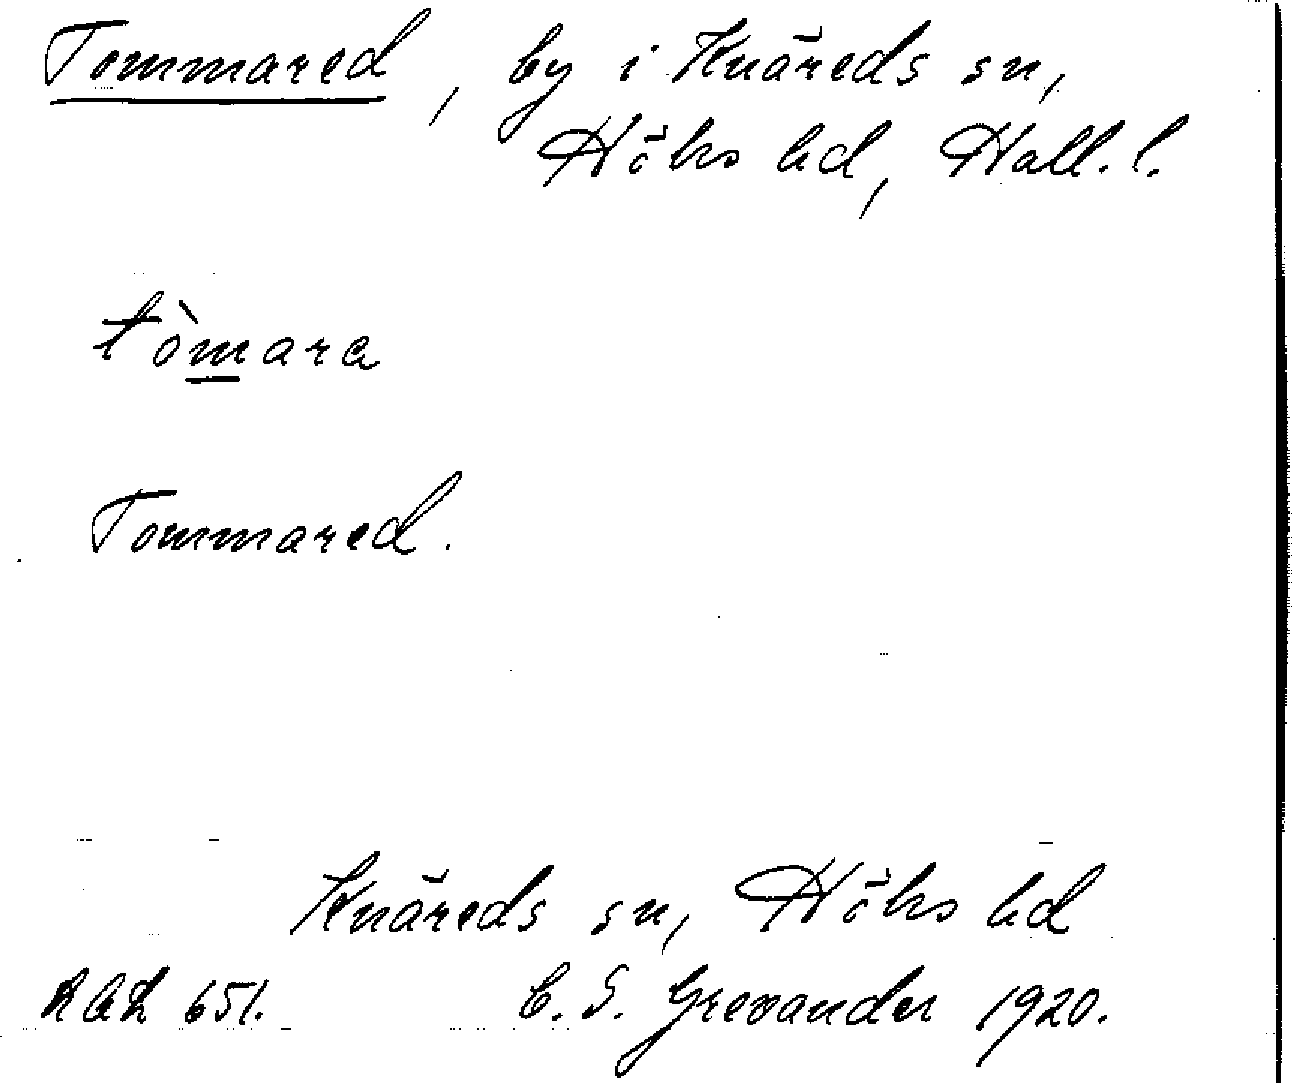 Tommared, by i Knäreds sn,
Höks hd, Hall. l.
tòmara
Tommared.
Knäreds sn, Höks hd
RAÄ 651. C. S. Grevander 1920.